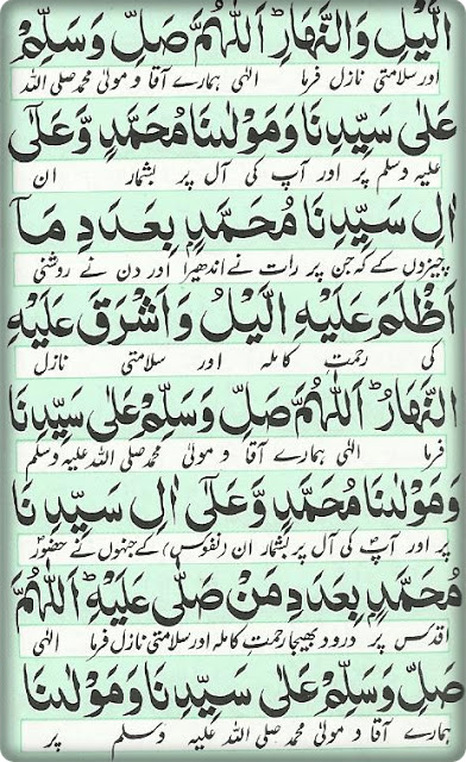 الَّيْلِ وَالنَّهَارِ ؕ اَللّٰهُمَّ صَلِّ وَسَلِّمْ
اور سلامتی نازل فرما الٰہی ہمارے آقا و مولیٰ محمد صلی اللہ
عَلٰی سَيِّدِنَا وَمَوْلٰىنَا مُحَمَّدٍ وَّعَلٰٓی
علیہ وسلم پر اور آپ کی آل پر بشمار ان
اٰلِ سَيِّدِنَا مُحَمَّدٍۭ بِعَدَدِ مَآ
چیزوں کے کہ جن پر رات نے اندھیرا اور دن نے روشنی
اَظْلَمَ عَلَيْهِ الَّيْلُ وَاَشْرَقَ عَلَيْهِ
کی رحمت کاملہ اور سلامتی نازل
النَّهَارُ ؕ اَللّٰهُمَّ صَلِّ وَسَلِّمْ عَلٰی سَيِّدِنَا
فرما الٰہی ہمارے آقا و مولیٰ محمد صلی اللہ علیہ وسلم
وَمَوْلٰىنَا مُحَمَّدٍ وَّعَلٰٓی اٰلِ سَيِّدِنَا
پر اور آپؐ کی آل پر بشمار ان (نفوس) کے جنہوں نے حضورؐ
مُحَمَّدٍۭ بِعَدَدِ مَنْ صَلّٰی عَلَيْهِ ؕ اَللّٰهُمَّ
اقدس پر درود بھیجا رحمت کاملہ اور سلامتی نازل فرما الٰہی
صَلِّ وَسَلِّمْ عَلٰی سَيِّدِنَا وَمَوْلٰىنَا
ہمارے آقا و مولیٰ محمد صلی اللہ علیہ وسلم پر